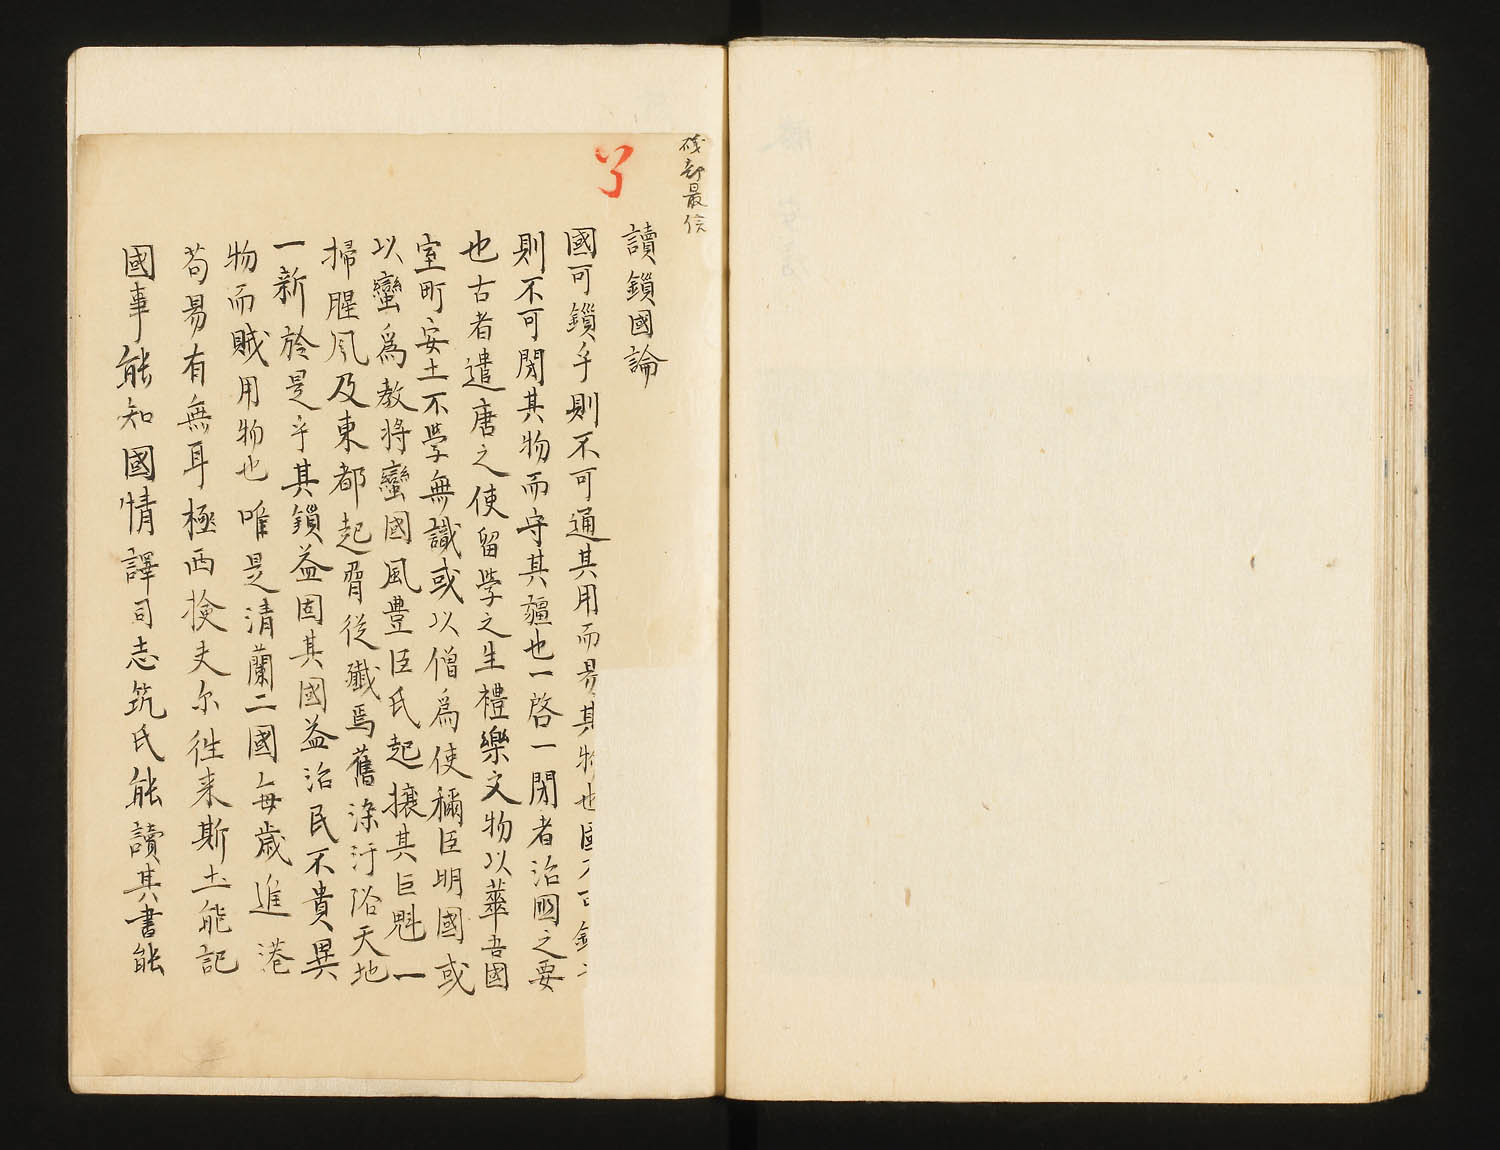 磯部最信
了
讀鎖國論
國可鎖乎則不可通其用而易其物也國不可鎖
則不可閉其物而守其疆也一啓一閉者治國之要
也古者遣唐之使留學之生禮樂文物以華吾國
室町安土不學無識或以僧爲使稱臣明國或
以蠻爲教將蠻國風豊臣氏起攘其巨魁一
掃腥風及東都起脅從殲焉舊染汙俗天地
一新於是乎其鎖益固其國益治民不貴異
物而賊用物也唯是清蘭二國毎歳進港
苟易有無耳極西撿夫尓徃来斯土能記
國事能知國情譯司志筑氏能讀其書能